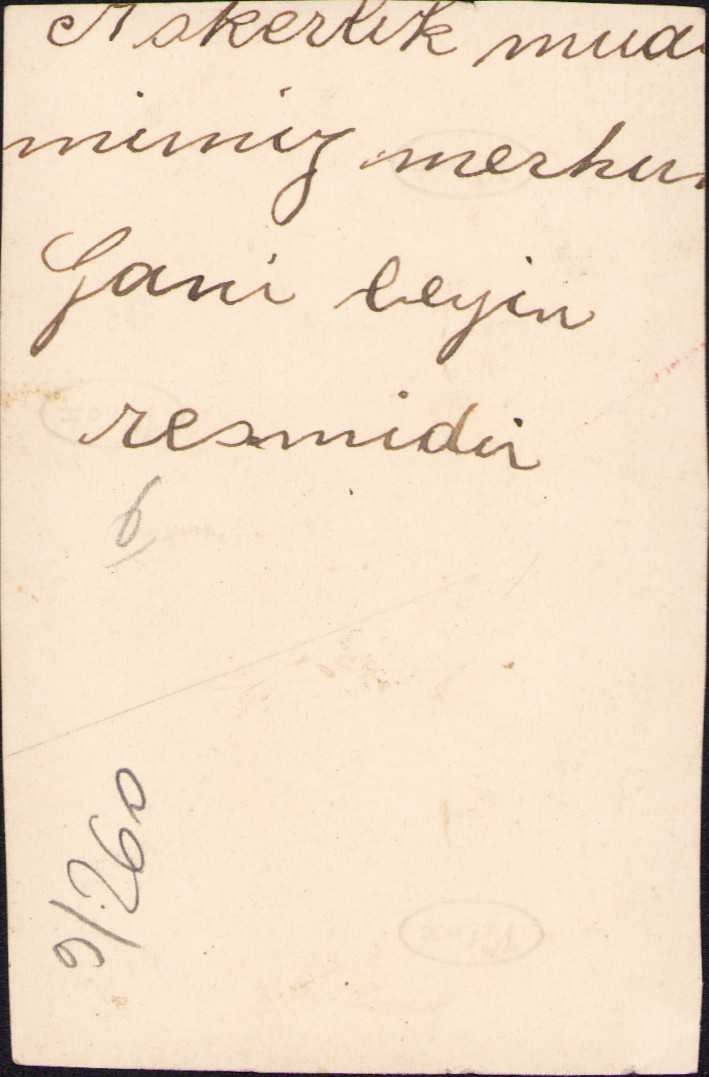 Askerlik mual
mimiz merhum
Gani beyin
resmidir
6
9/260
Velox